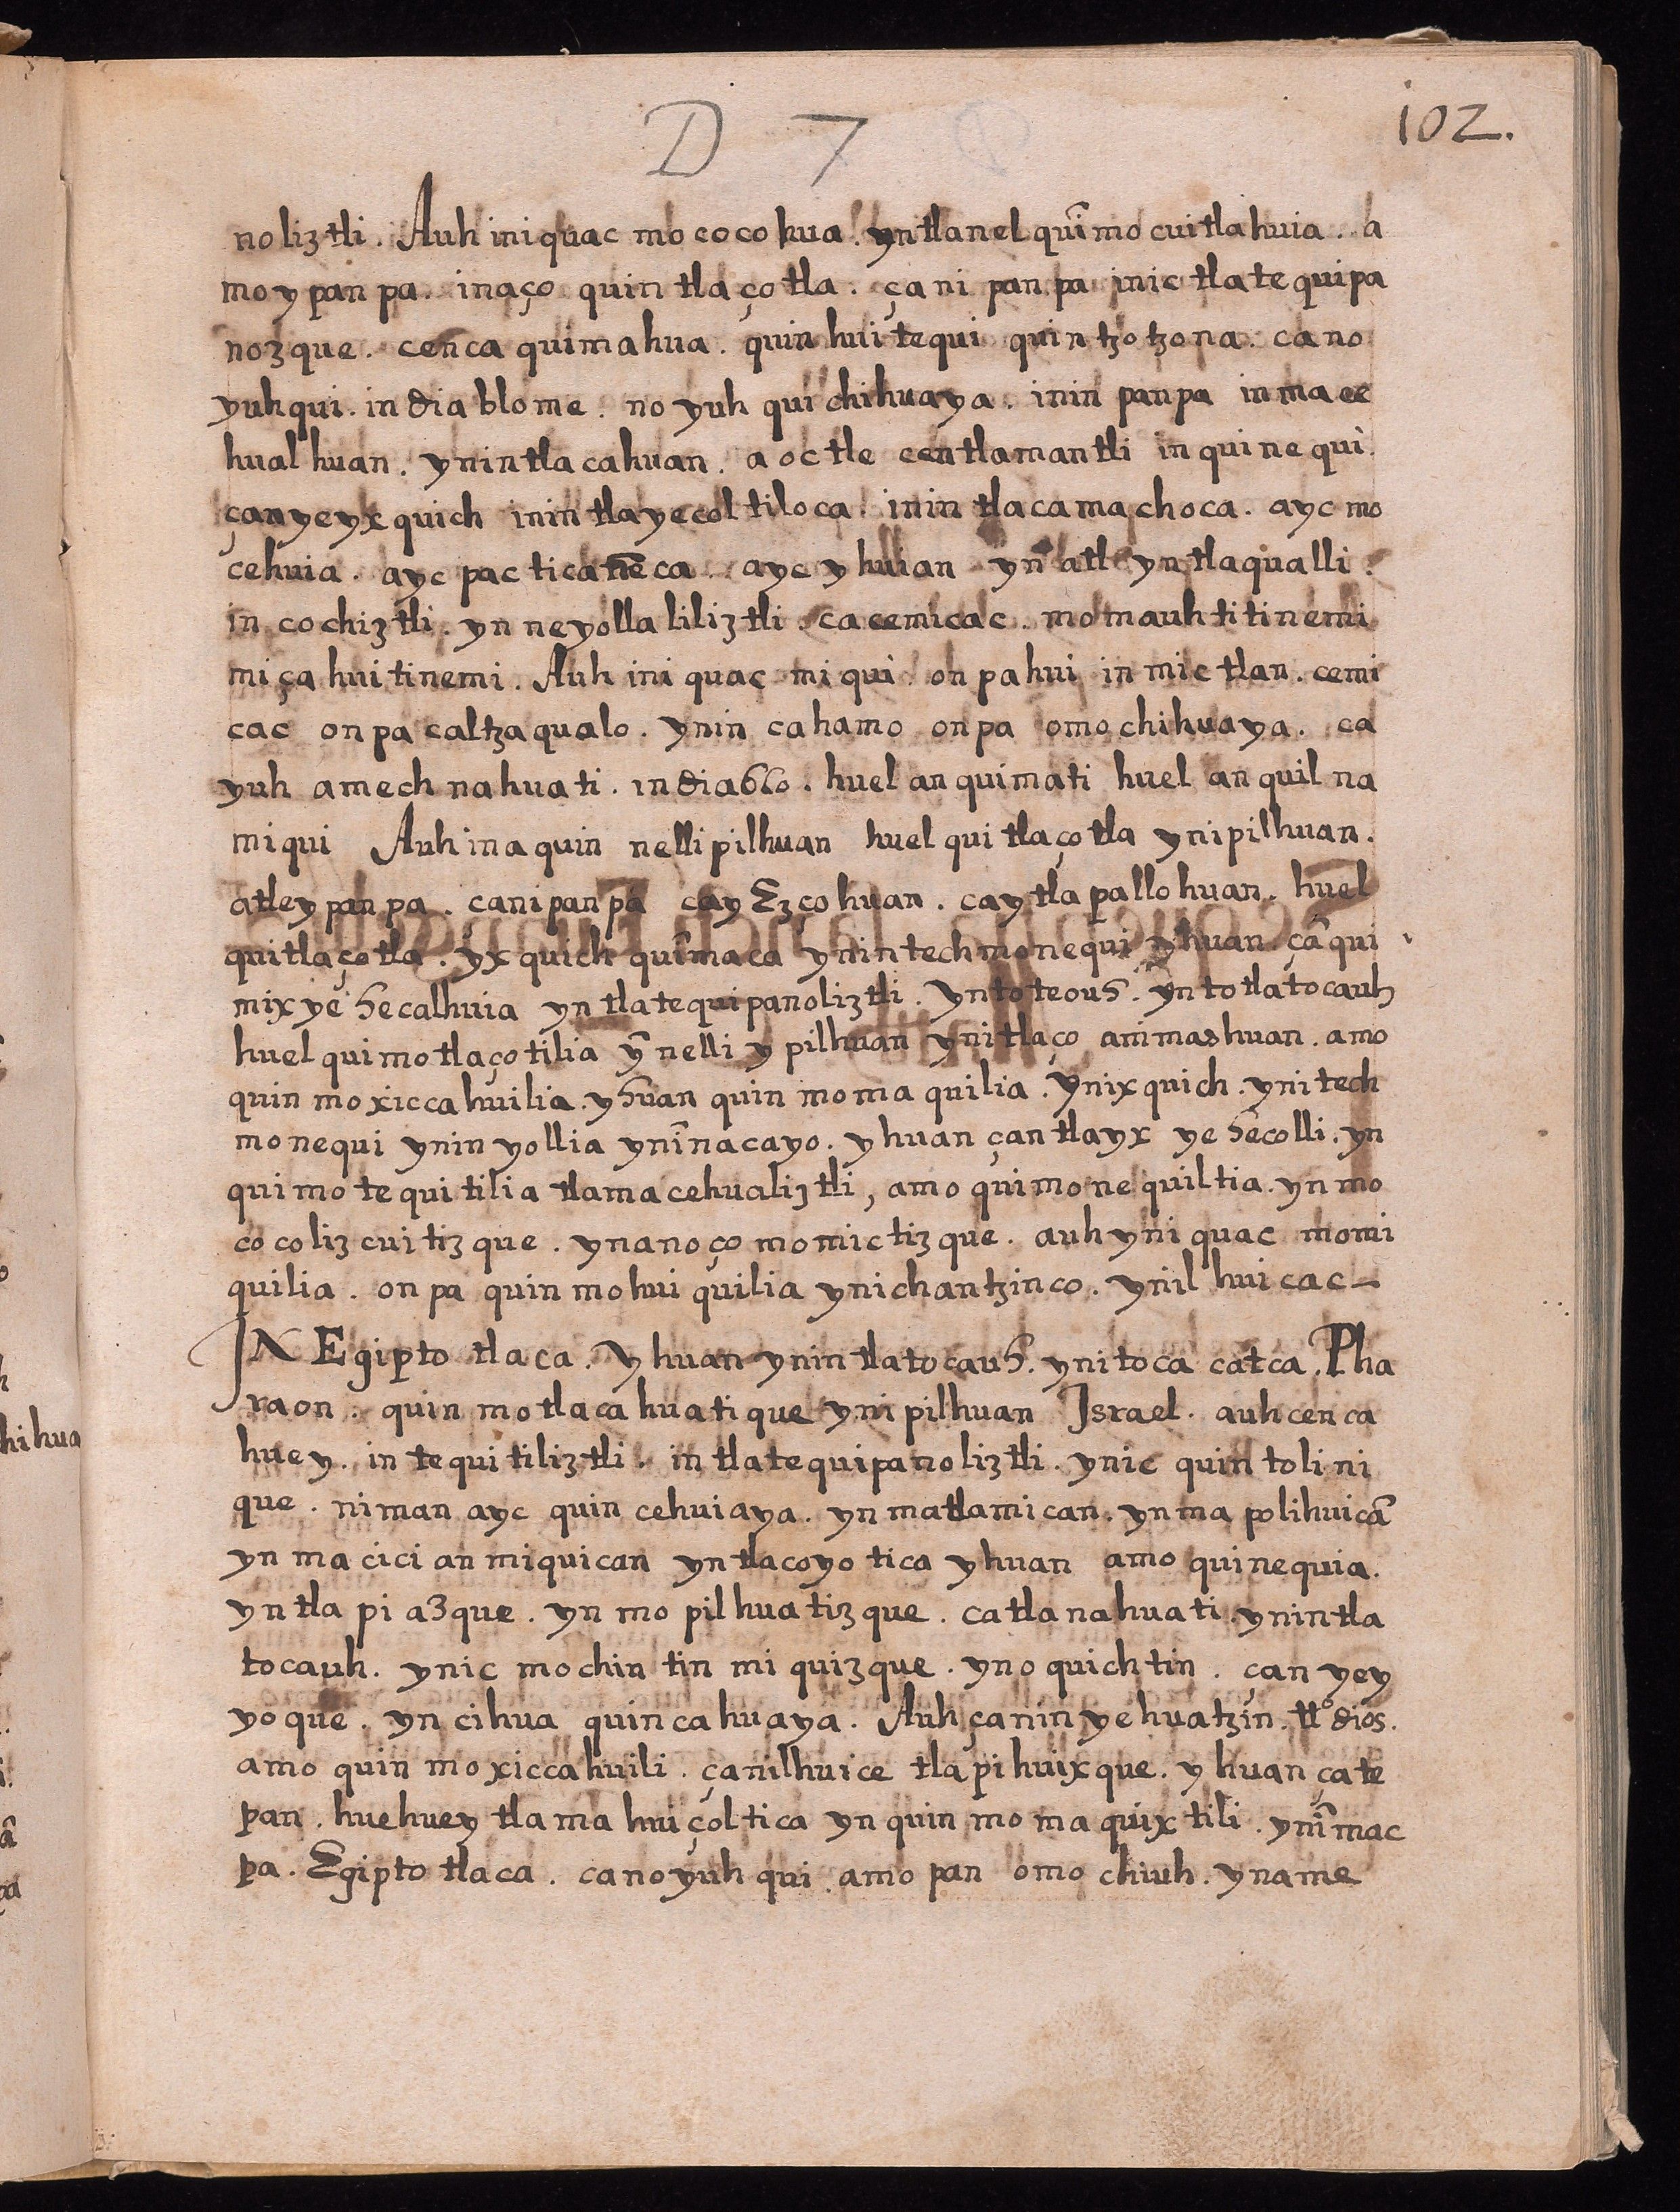 D 7
102.
noliztli. Auh iniquac mo cocohua. yntlanel quīmo cuitlahuia. a
moypan pa. inaço quin tlaçotla. çani panpa inic tlatequipa
nozque. cenca quimahua. quin huitequi quin tzotzona. cano
yuhqui. in diablome. no yuh qui chihuaya. inin panpa in mace
hualhuan. ynintlacahuan. aoctle centlamantli in quinequi.
çanyeyxquich inin tlayecoltiloca. inin tlacamachoca. ayc mo
cehuia. ayc pacticanēca. ayc yhuian yn atl yntlaqualli.
in cochiztli. yn neyollaliliztli. ca cemicac. momauhtitinemi
miçahuitinemi. Auh ini quac miqui onpahui in mictlan. cemi
cac onpa caltzaqualo. ynin cahamo onpa omochihuaya. ca
yuh amech nahuati. indiablo. huel anquimati huel an quilna
miqui Auh inaquin nellipilhuan huel qui tlaçotla ynipilhuan.
atleypanpa. canipanpa cay Ezçohuan. caytlapallohuan. huel
quitlaçotla. yxquich quīmaca ynintechmonequi yhuan. çā qui
mixyehecalhuia yn tlatequipanoliztli. Yntoteouh. yntotlatocauh
huel quimotlaçotilia ȳ nelli ypilhuan ynitlaço animashuan. amo
quin moxiccahuilia. yhuan quin momaquilia. Ynixquich. ynitech
monequi ynin yollia ynīnacayo. yhuan çantlayx yehecolli. yn
quimotequitilia tlamacehualiztli, amo quimonequiltia. yn mo
cocolizcuitizque. ynanoço momictizque. auh yni quac momi
quilia. onpa quin mohuiquilia ynichantzinco. ynilhuicac—
IN Egipto tlaca. Yhuan ynintlatocauh. ynitoca catca. Pha
raon. quin motlacahuatique ynipilhuan Israel. auhcenca
huey. in tequitiliztli. in tlatequipanoliztli. ynic quintolini
que. niman ayc quin cehuiaya. yn matlamican. yn ma polihuicā
yn ma cicianmiquican yn tlacoyotica yhuan amo quinequia.
yn tla piazque. yn mopilhuatizque. catlanahuati. ynintla
tocauh. ynic mochintin miquizque. yn oquichtin. çan yey
yoque. yn cihua quincahuaya. Auh çanin yehuatzin. tt.º dios.
amo quin moxiccahuili. çanilhuice tlapihuixque. yhuan çate
pan. huehuey tlamahuiçoltica yn quin momaquixtili. ynīmac
pa. Egipto tlaca. canoyuhqui amopan omochiuh. yname
hihua